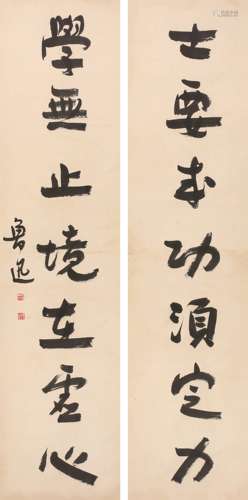 士要成功須定力
學無止境在虛心
魯迅